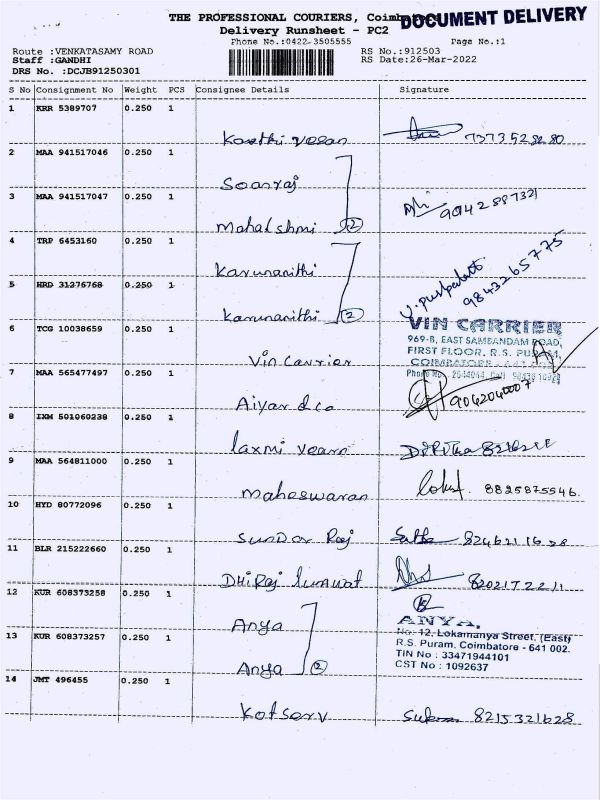 THE PROFESSIONAL COURIERS,
DOCUMENT DELIVERY
Delivery Runsheet - PC2
Phone No.:0422-3505555
Page No.:1
Route :VENKATASAMY ROAD
RS No.:912503
Staff :GANDHI
RS Date:26-Mar-2022
DRS No. :DCJB91250301
S No Consignment No Weight PCS Consignee Details Signature
1 KRR 5389707 0.250 1
2 MAA 941517046 0.250 1
Soosraj
3 MAA 941517047 0.250 1
Mahalshmi 2
4 TRP 6453160 0.250 1
Karunanithi
9843265775
5 HRD 31276768 0.250 1
Karunanithi 2
VIN CARRIER
969-B, EAST SAMBANDAM ROAD,
6 TCG 10038659 0.250 1
FIRST FLOOR, R.S. PURAM,
COIMBATORE
Vin Carrier
7 MAA 565477497 0.250 1
Aiyar & co
9042040007
8 IXM 501060238 0.250 1
laxmi
9 MAA 564811000 0.250 1
Maheswaran 8825875546.
10 HYD 80772096 0.250 1
Sundar Raj
11 BLR 215222660 0.250 1
DHiRaj
12 KUR 608373258 0.250 1
Anya
ANYA,
No: 12, Lokamanya Street, (East)
13 KUR 608373257 0.250 1
R.S. Puram, Coimbatore - 641 002.
TIN No : 33471944101
CST No : 1092637
Anya 2
14 JMT 496455 0.250 1
8215321628